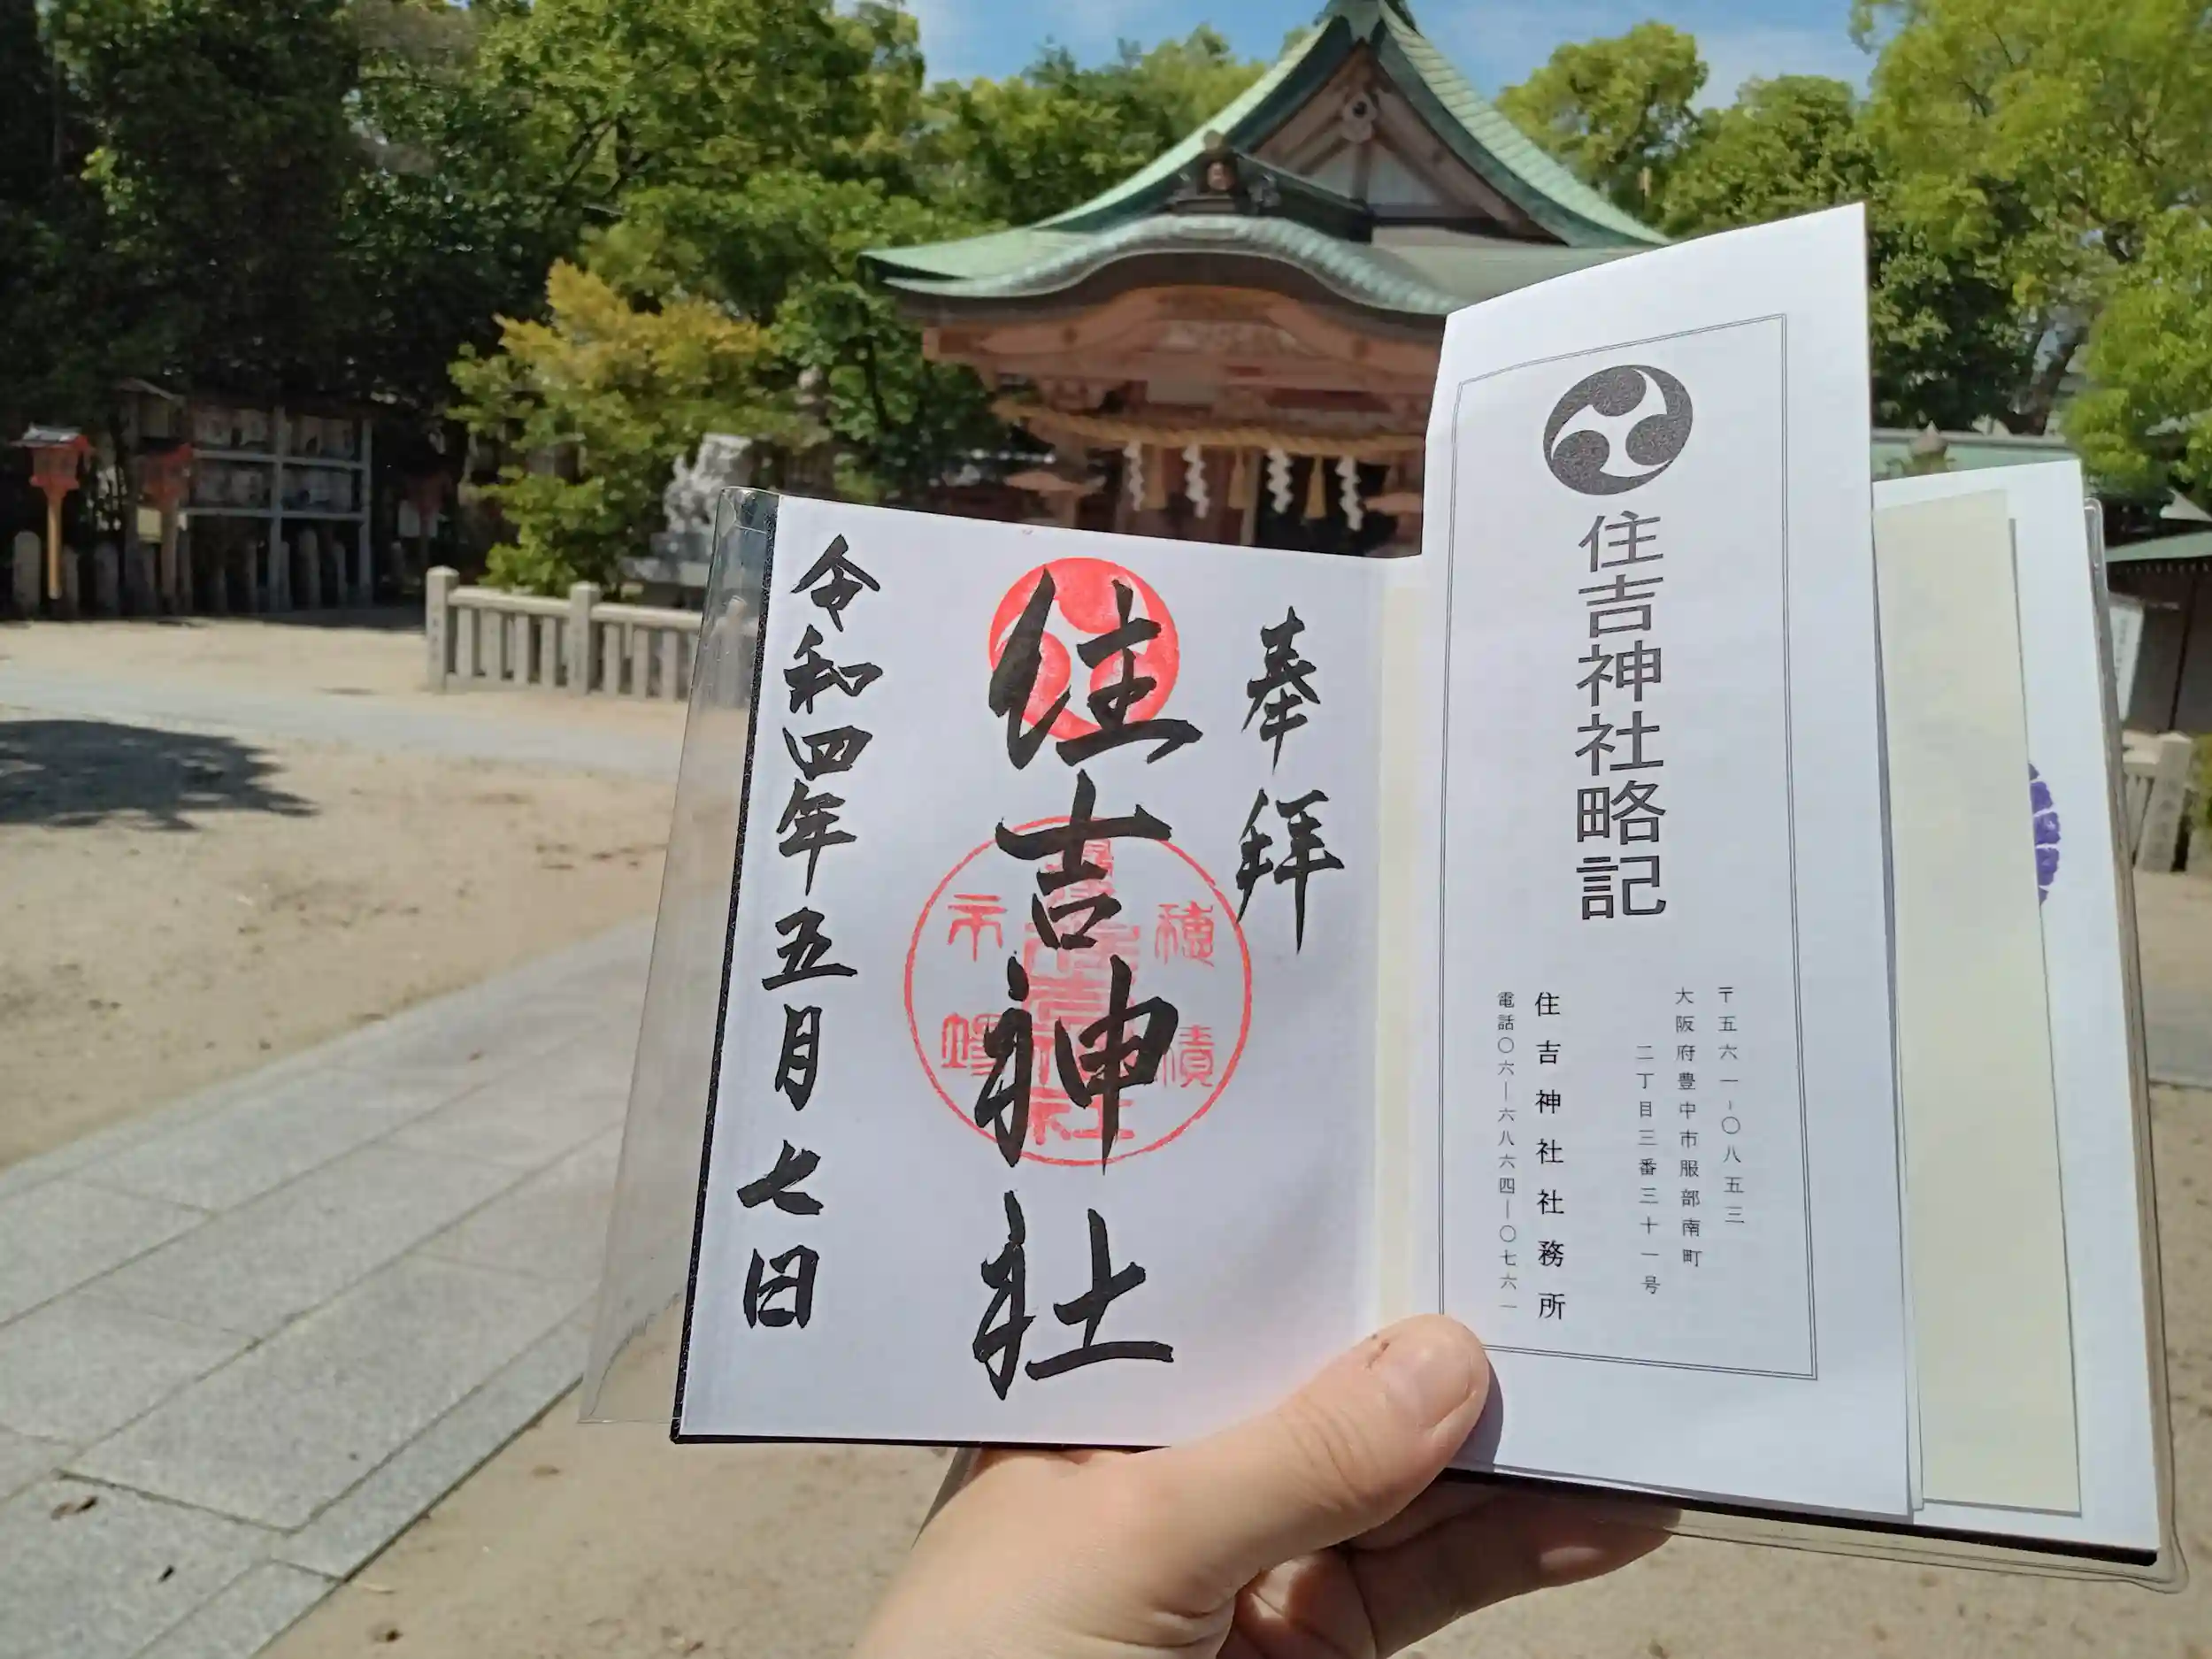 住吉神社略記
〒五六一-〇八五三
大阪府豊中市服部南町
二丁目三番三十一号
住吉神社社務所
電話〇六―六八六四―〇七六一
奉拝
住吉神社
穂積
市場
令和四年五月七日